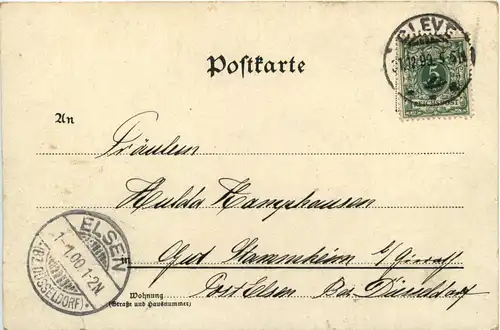 CLEVE
31.12.99.
5
Postkarte
An
Fräulein
Hulda Kamphausen
Gut Stammheim b/
Post Elsen Bez. Düsseldorf
Wohnung
(Straße und Hausnummer)
ELSEN
1-1.00.1-2N
(BZ. DÜSSELDORF)